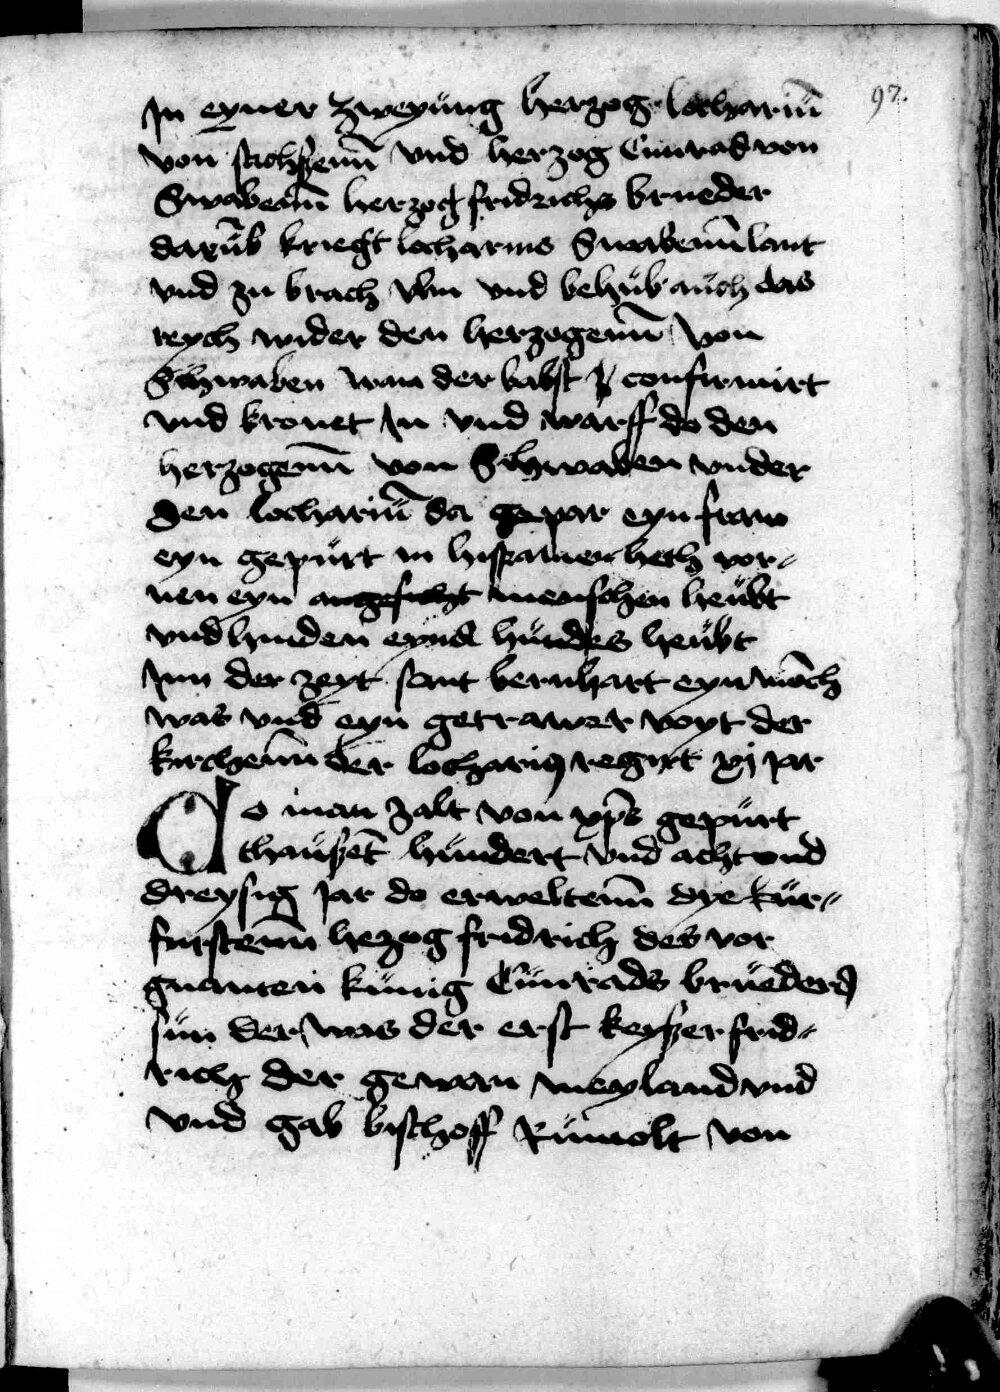 97.
Jn eyner zweyüng herzog lothariū
von sachszenn̄ vnd herzog Cunrad von
Swabenn̄ herzog fridrichs brueder
darūb krieft lotharius Swabenn̄ lant
vnd zu brach vlm vnd behüb aüch das
reych wider den herzogenn̄ von
Schwaben wan der babst confirmirt
vnd kronet Jn vnd warff do den
herzogenn̄ von Schwaben vnder
den lothariū da gepar eyn fraw
eyn gepürt in hispanien heth vor-
nen eyn angesicht menschen heübt
vnd hinden eynd hündes heübt
Jnn der zeyt sant bernhart eyn mōch
was vnd eyn getrawer voyt der
kirchenn̄ der lotharius regirt xj jar
Do man zalt von xp̄s gepürt
thaüszēt hündert vnd acht vnd
dreysig jar do erweltenn̄ dye kür-
fürstenn̄ hezog fridrich des vor
gnanten künig Cünrads brüeders
sün der was der erst keyszer frid-
rich der gewan meyland vnd
vnd gab bischoff Rümolt von